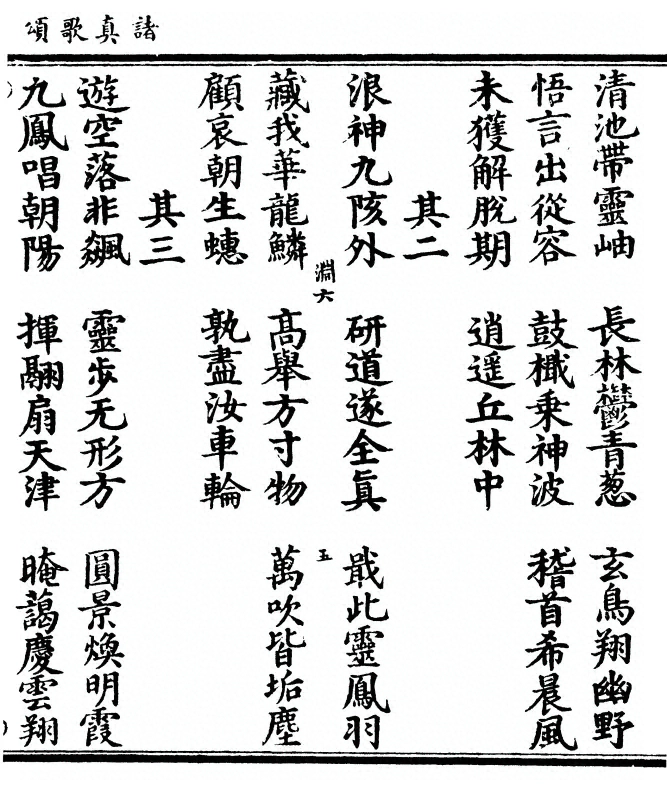 諸真歌頌
清池帶靈岫　長林鬱青葱　玄鳥翔幽野
悟言出從容　鼓檝乘神波　稽首希晨風
未獲解脫期　逍遥丘林中
其二
浪神九陔外　研道遂全真　戢此靈鳳羽
淵六　五
藏我華龍鱗　高舉方寸物　萬吹皆垢塵
顧哀朝生蟪　孰盡汝車輪
其三
遊空落非飆　靈步无形方　圓景煥明霞
九鳳唱朝陽　揮翮扇天津　晻藹慶雲翔